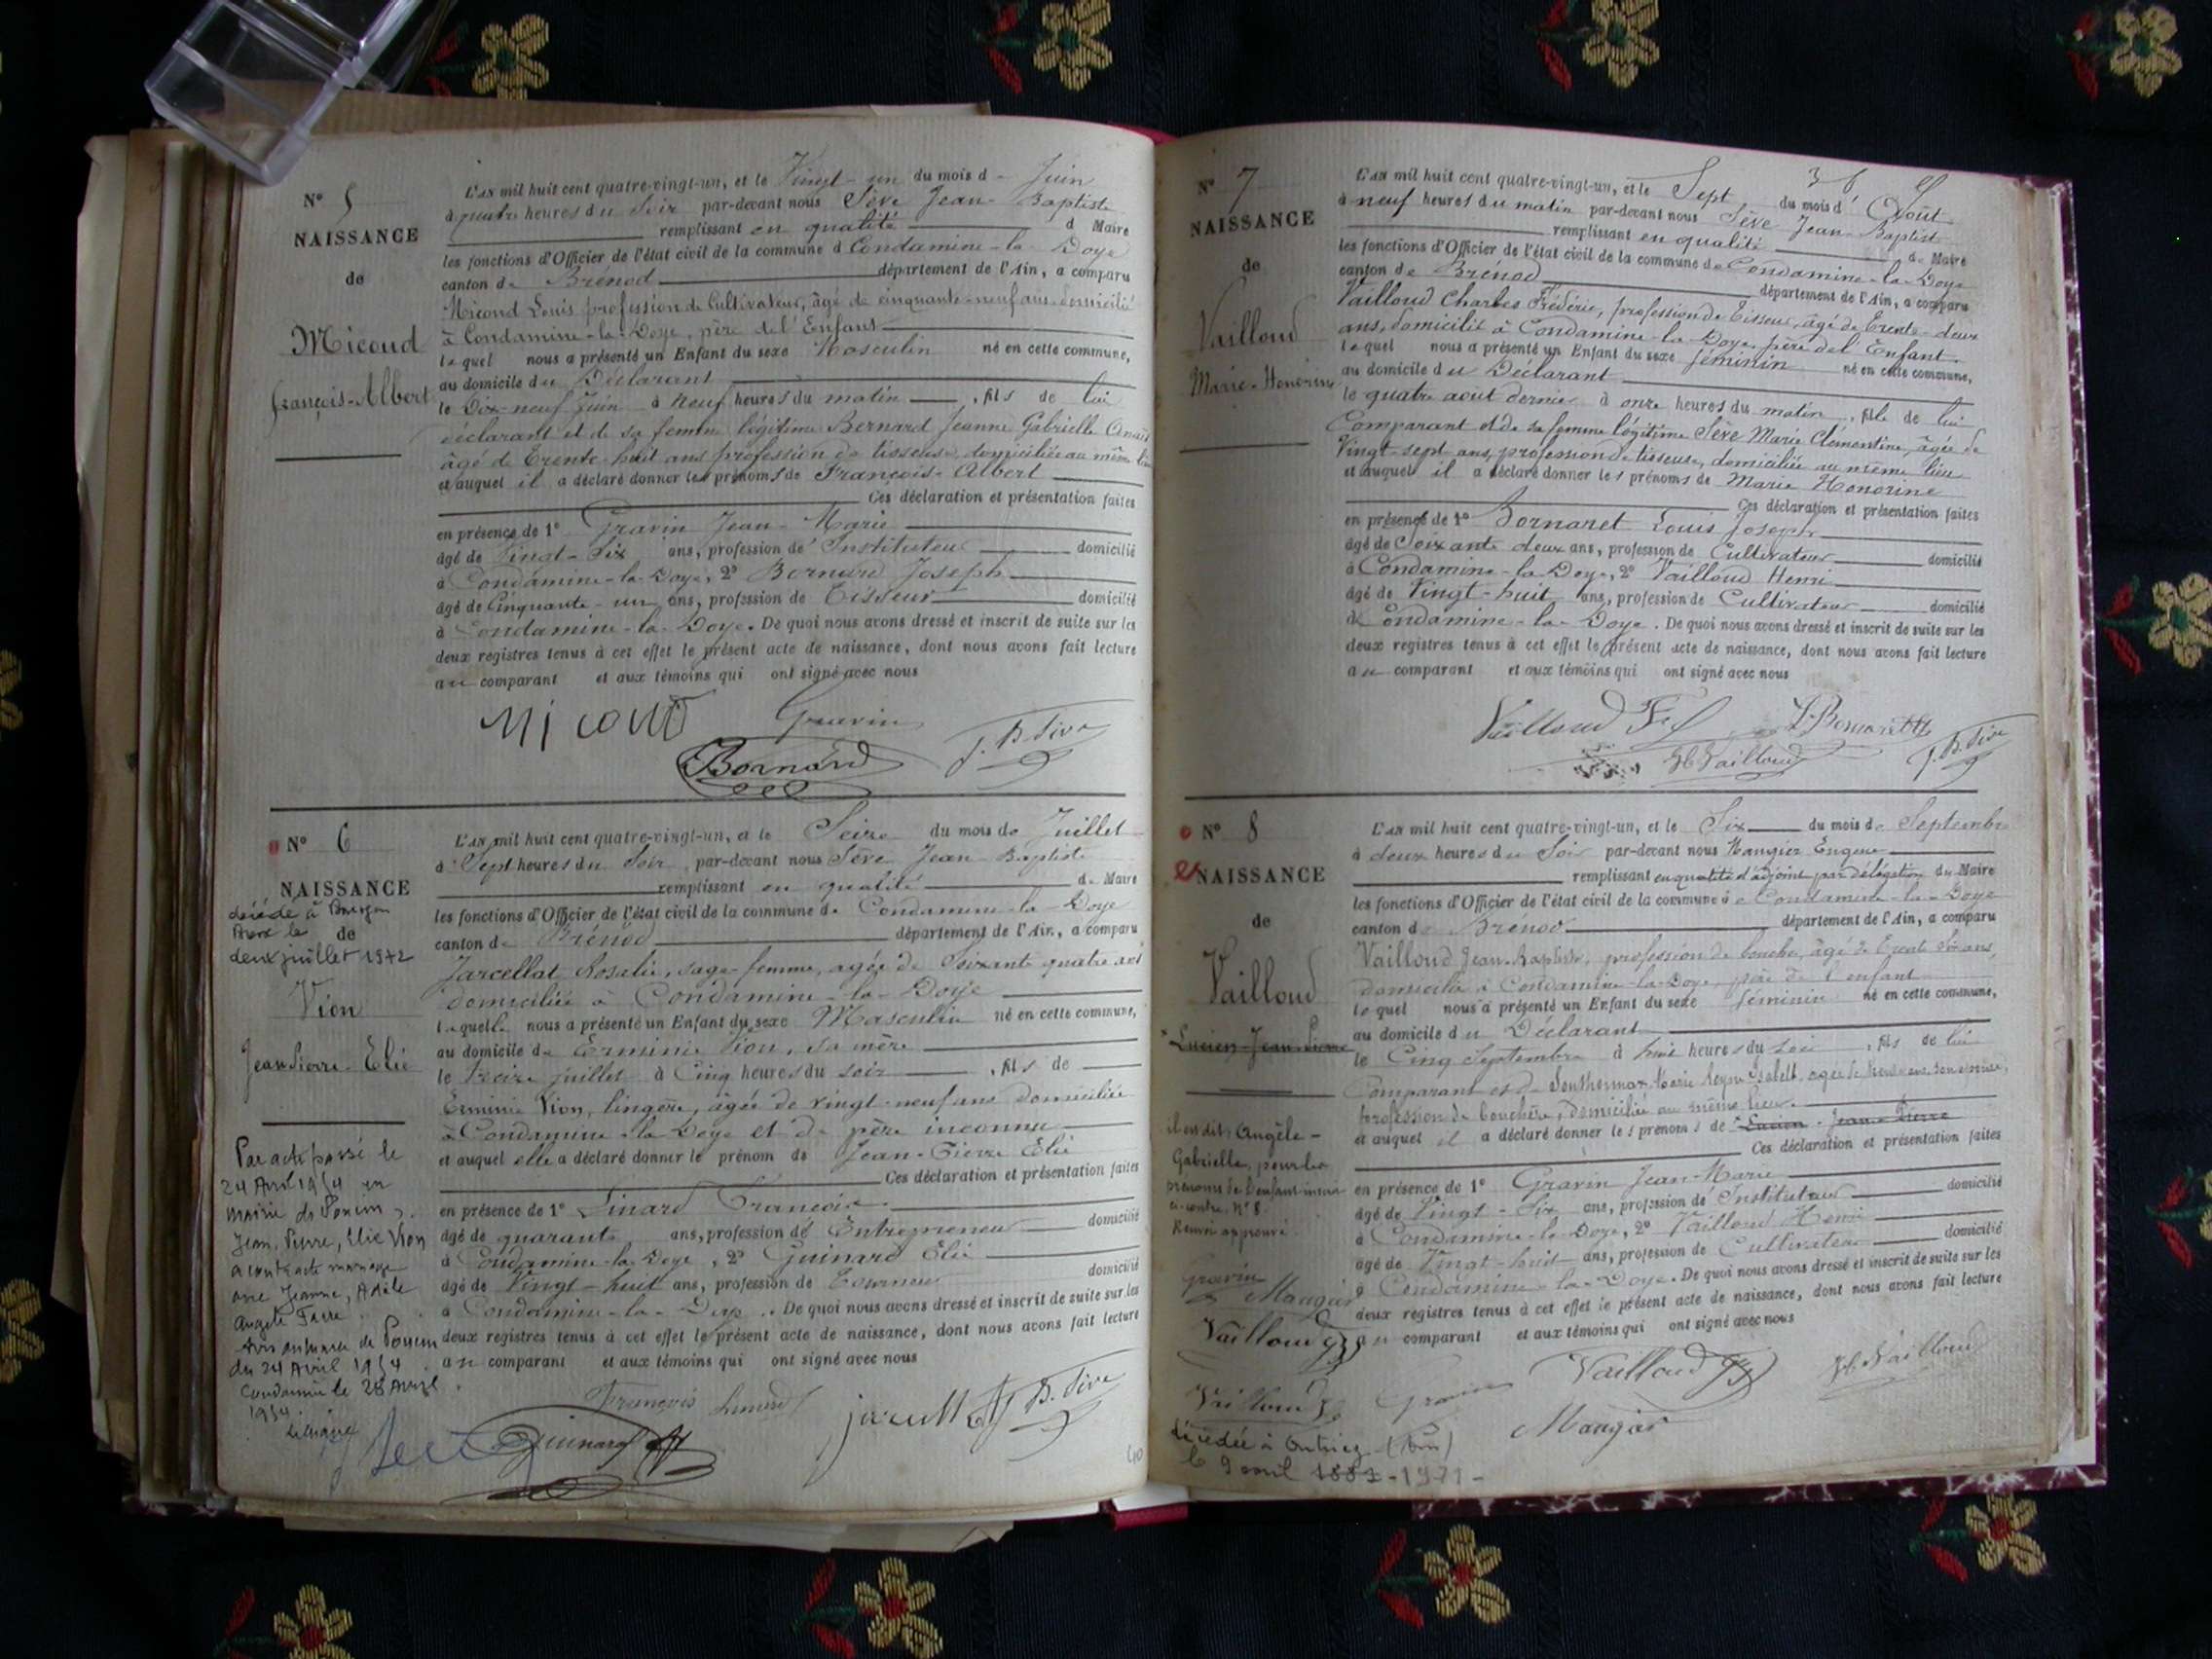 N° 5
NAISSANCE
de
Micoud
François-Albert
L'AN mil huit cent quatre-vingt-un, et le Vingt-un du mois d Juin
à quatre heures du Soir par-devant nous Sève Jean-Baptiste
remplissant en qualité d Maire
les fonctions d'Officier de l'état civil de la commune d Condamine-la-Doye
canton de Brénod département de l'Ain, a comparu
Micoud Louis profession de Cultivateur, âgé de cinquante-neuf ans domicilié
à Condamine-la-Doye, père de l'Enfant
lequel nous a présenté un Enfant du sexe Masculin né en cette commune,
au domicile du Déclarant
le Dix-neuf Juin à Neuf heures du matin, fils de lui
déclarant et de sa femme légitime Bernard Jeanne Gabrielle
âgé de Trente-huit ans profession de tisseuse domiciliée au même lieu
et auquel il a déclaré donner les prénoms de François-Albert
Ces déclaration et présentation faites
en présence de 1° Gravin Jean-Marie
âgé de Vingt-Six ans, profession d'Instituteur domicilié
à Condamine-la-Doye, 2° Bernard Joseph
âgé de Cinquante-un ans, profession de Tisseur domicilié
à Condamine-la-Doye. De quoi nous avons dressé et inscrit de suite sur les
deux registres tenus à cet effet le présent acte de naissance, dont nous avons fait lecture
au comparant et aux témoins qui ont signé avec nous
Micoud Gravin
Bernard J. B. Sève
N° 6
NAISSANCE
de
décédé à
le
deux juillet 1972
Vion
Jean Pierre-Elie
Par acte passé le
24 Avril 1954 en
mairie de Poncin,
Jean, Pierre, Elie Vion
a contracté mariage
avec Jeanne, Adèle
Angèle
de Poncin
du 24 Avril 1954
Condamine le 28 Avril
1954.
L'AN mil huit cent quatre-vingt-un, et le Seize du mois de Juillet
à Sept heures du Soir par-devant nous Sève Jean-Baptiste
remplissant en qualité de Maire
les fonctions d'Officier de l'état civil de la commune de Condamine-la-Doye
canton de Brénod département de l'Ain, a comparu
Jarcellat Rosalie, sage-femme, agée de Soixante quatre ans
domiciliée à Condamine-la-Doye
laquelle nous a présenté un Enfant du sexe Masculin né en cette commune,
au domicile de Erminie Vion, sa mère
le Treize juillet à Cinq heures du soir, fils de
Erminie Vion, lingère, âgée de vingt-neuf ans domiciliée
à Condamine-la-Doye et de père inconnu
et auquel elle a déclaré donner le prénom de Jean-Pierre Elie
Ces déclaration et présentation faites
en présence de 1° Linard François
âgé de quarante ans, profession de Entrepreneur domicilié
à Condamine-la-Doye, 2° Guinard Elie
âgé de Vingt-huit ans, profession de Tourneur domicilié
à Condamine-la-Doye. De quoi nous avons dressé et inscrit de suite sur les
deux registres tenus à cet effet le présent acte de naissance, dont nous avons fait lecture
au comparant et aux témoins qui ont signé avec nous
François Linard J. B. Sève
Guinard
N° 7
NAISSANCE
de
Vailloud
Marie-Honorine
L'AN mil huit cent quatre-vingt-un, et le Sept du mois d'Août
à neuf heures du matin par-devant nous Sève Jean-Baptiste
remplissant en qualité de Maire
les fonctions d'Officier de l'état civil de la commune de Condamine-la-Doye
canton de Brénod département de l'Ain, a comparu
Vailloud Charles Frédéric, profession de Tisseur, âgé de Trente-deux
ans, domicilié à Condamine-la-Doye, père de l'Enfant.
lequel nous a présenté un Enfant du sexe féminin né en cette commune,
au domicile du Déclarant
le quatre août dernier à onze heures du matin, fille de lui
Comparant et de sa femme légitime Sève Marie Clémentine, âgée de
Vingt-sept ans, profession de tisseuse, domiciliée au même lieu
et auquel il a déclaré donner les prénoms de Marie Honorine
Ces déclaration et présentation faites
en présence de 1° Bornaret Louis Joseph
âgé de Soixante deux ans, profession de Cultivateur domicilié
à Condamine-la-Doye, 2° Vailloud Henri
âgé de Vingt-huit ans, profession de Cultivateur domicilié
de Condamine-la-Doye. De quoi nous avons dressé et inscrit de suite sur les
deux registres tenus à cet effet le présent acte de naissance, dont nous avons fait lecture
au comparant et aux témoins qui ont signé avec nous
Vailloud L. Bornaret
H. Vailloud J. B. Sève
N° 8
NAISSANCE
de
Vailloud
Lucien-Jean-Pierre
il est dit: Angèle-
Gabrielle, pour les
prénoms de l'enfant inscrit
ci-contre, N° 8.
Renvoi approuvé
Gravin
Maugier
Vailloud
L'AN mil huit cent quatre-vingt-un, et le Six du mois de Septembre
à deux heures du Soir par-devant nous Maugier Eugène
remplissant en qualité d'adjoint par délégation du Maire
les fonctions d'Officier de l'état civil de la commune de Condamine-la-Doye
canton de Brénod département de l'Ain, a comparu
Vailloud Jean-Baptiste, profession de boucher, âgé de Trente six ans,
domicilié à Condamine-la-Doye, père de l'enfant
lequel nous a présenté un Enfant du sexe féminin né en cette commune,
au domicile du Déclarant
le Cinq Septembre à huit heures du soir, fils de lui
Comparant et de Marie son épouse,
profession de bouchère, domiciliée au même lieu.
et auquel il a déclaré donner les prénoms de Lucien-Jean-Pierre
Ces déclaration et présentation faites
en présence de 1° Gravin Jean-Marie
âgé de Vingt-Six ans, profession d'Instituteur domicilié
à Condamine-la-Doye, 2° Vailloud Henri
âgé de Vingt-huit ans, profession de Cultivateur domicilié
à Condamine-la-Doye. De quoi nous avons dressé et inscrit de suite sur les
deux registres tenus à cet effet le présent acte de naissance, dont nous avons fait lecture
au comparant et aux témoins qui ont signé avec nous
Vailloud Gravin Vailloud H. Vailloud
Maugier
décédée à
le 9 avril 1881-1971-